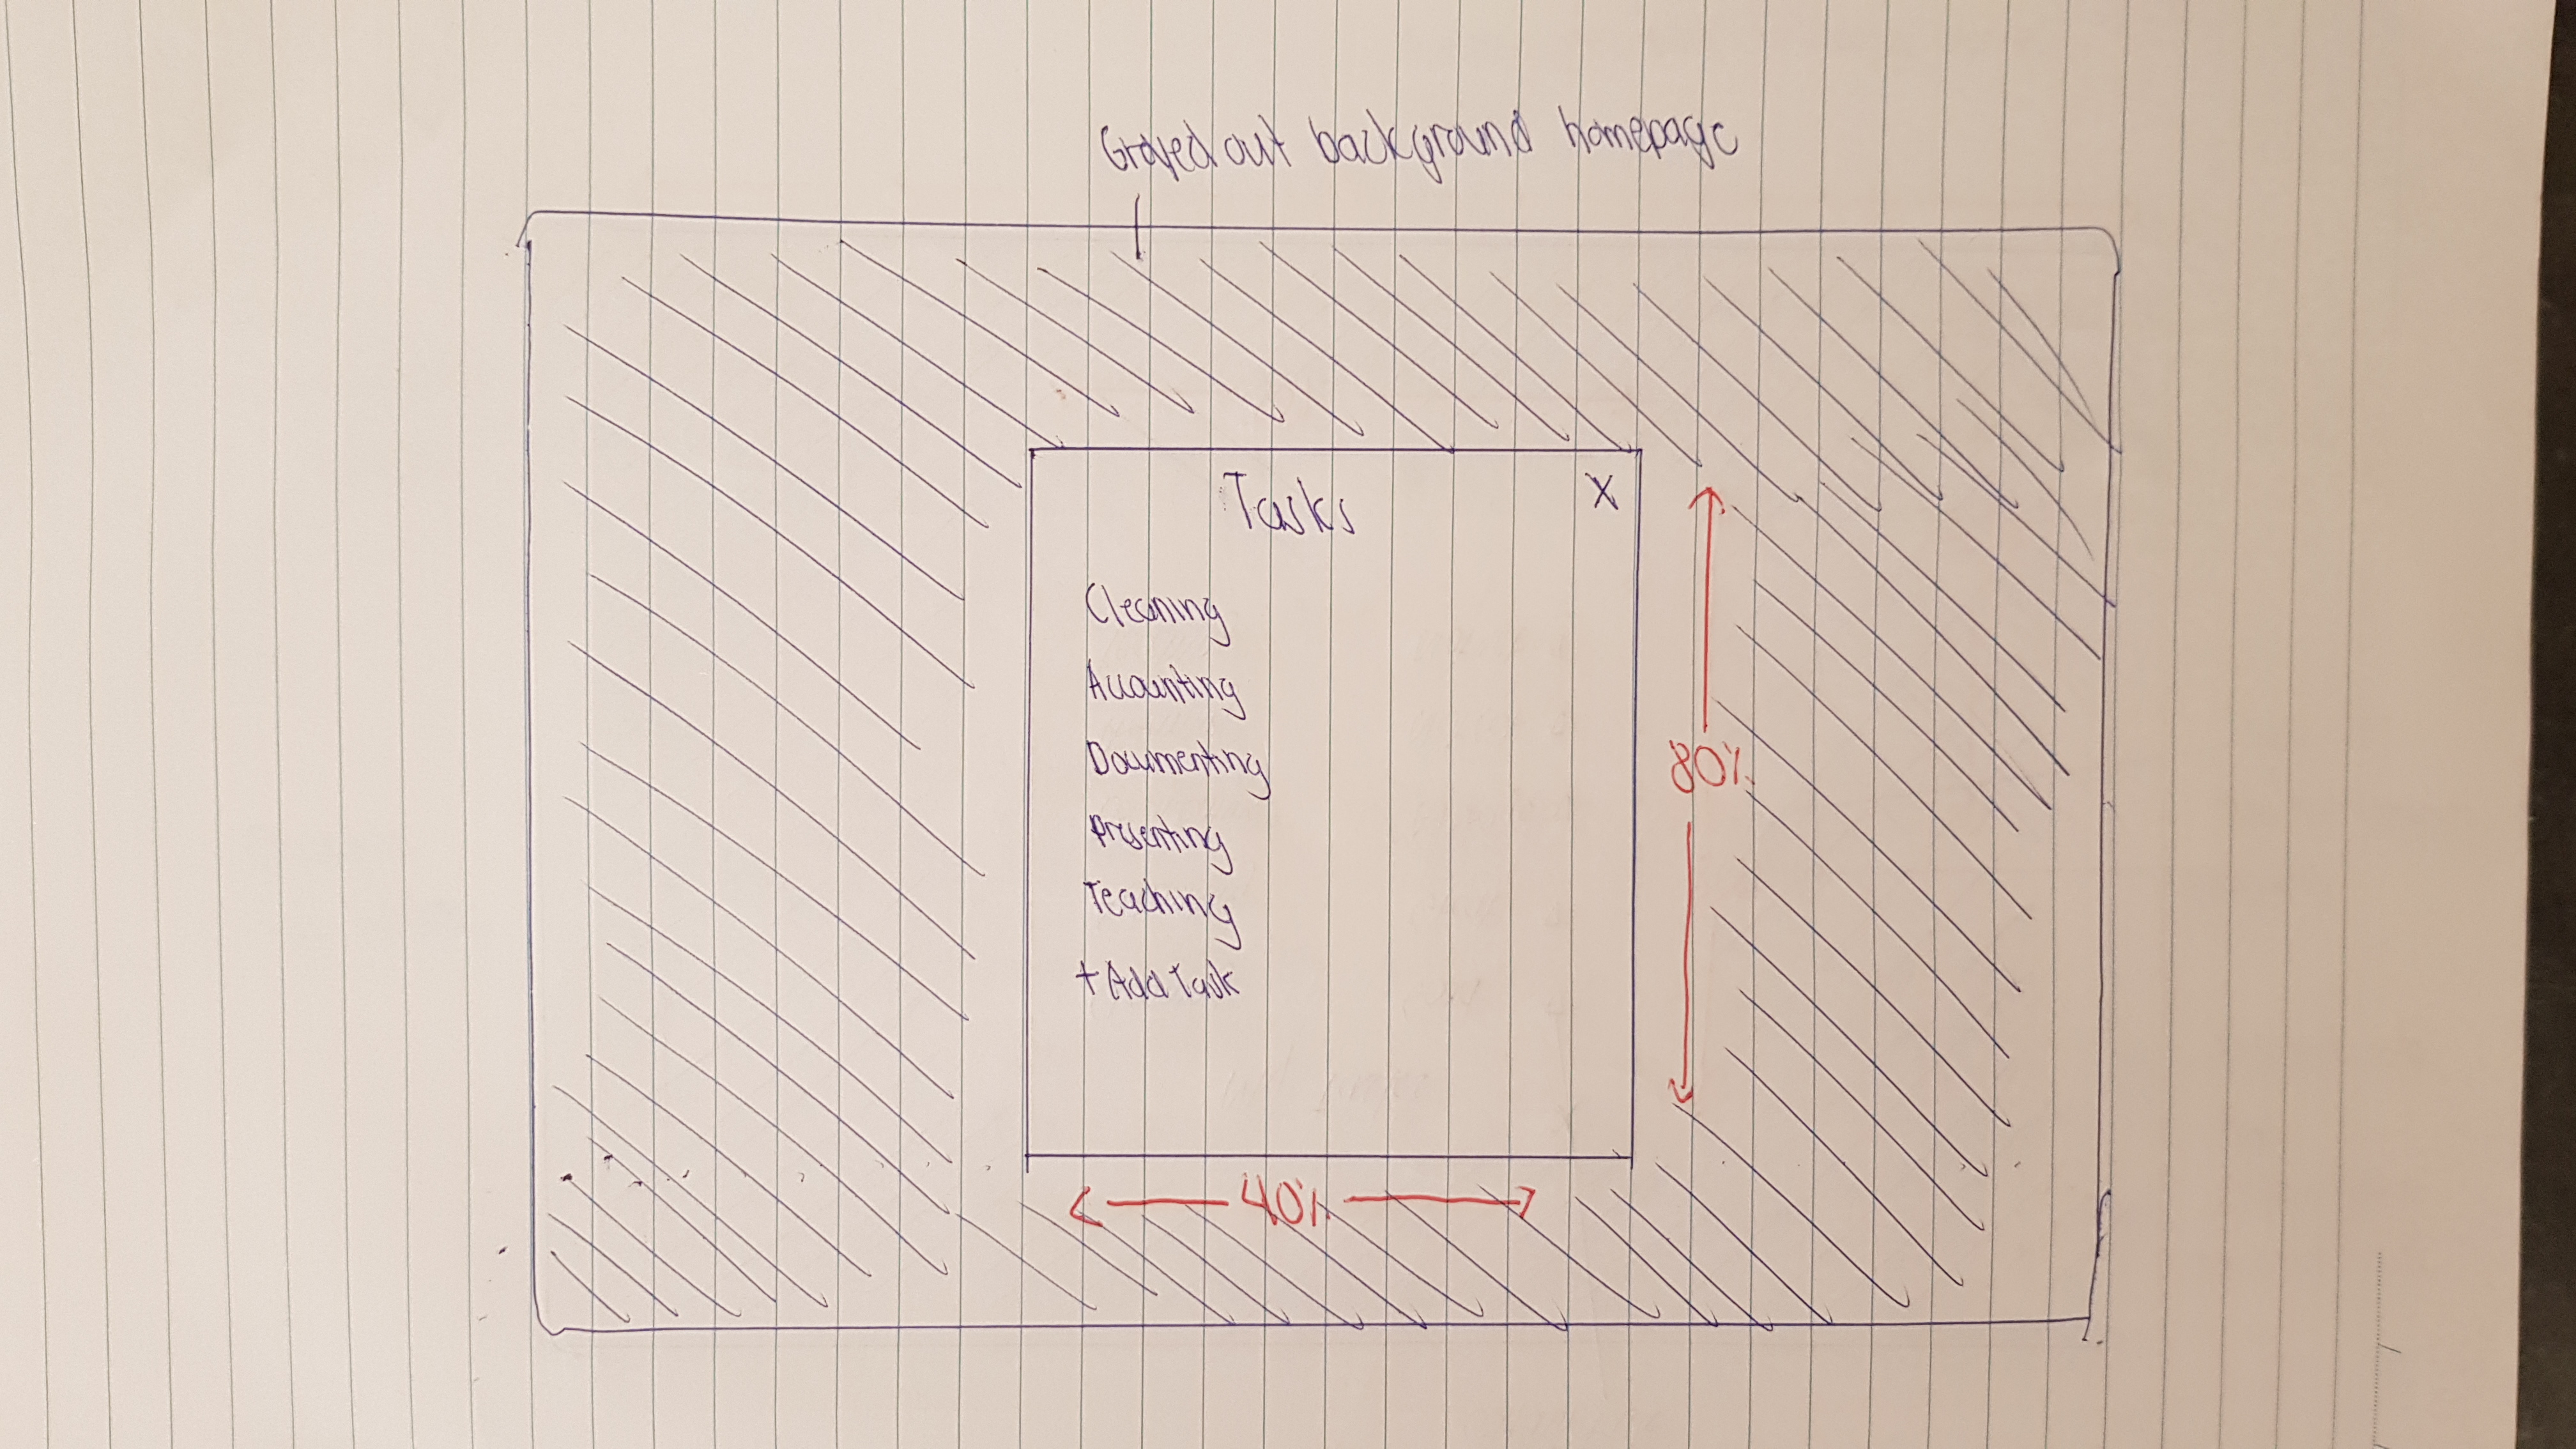 Grayed out background homepage
Tasks X
Cleaning
Accounting
Documenting
Presenting
Teaching
+ Add Task
80%
40%